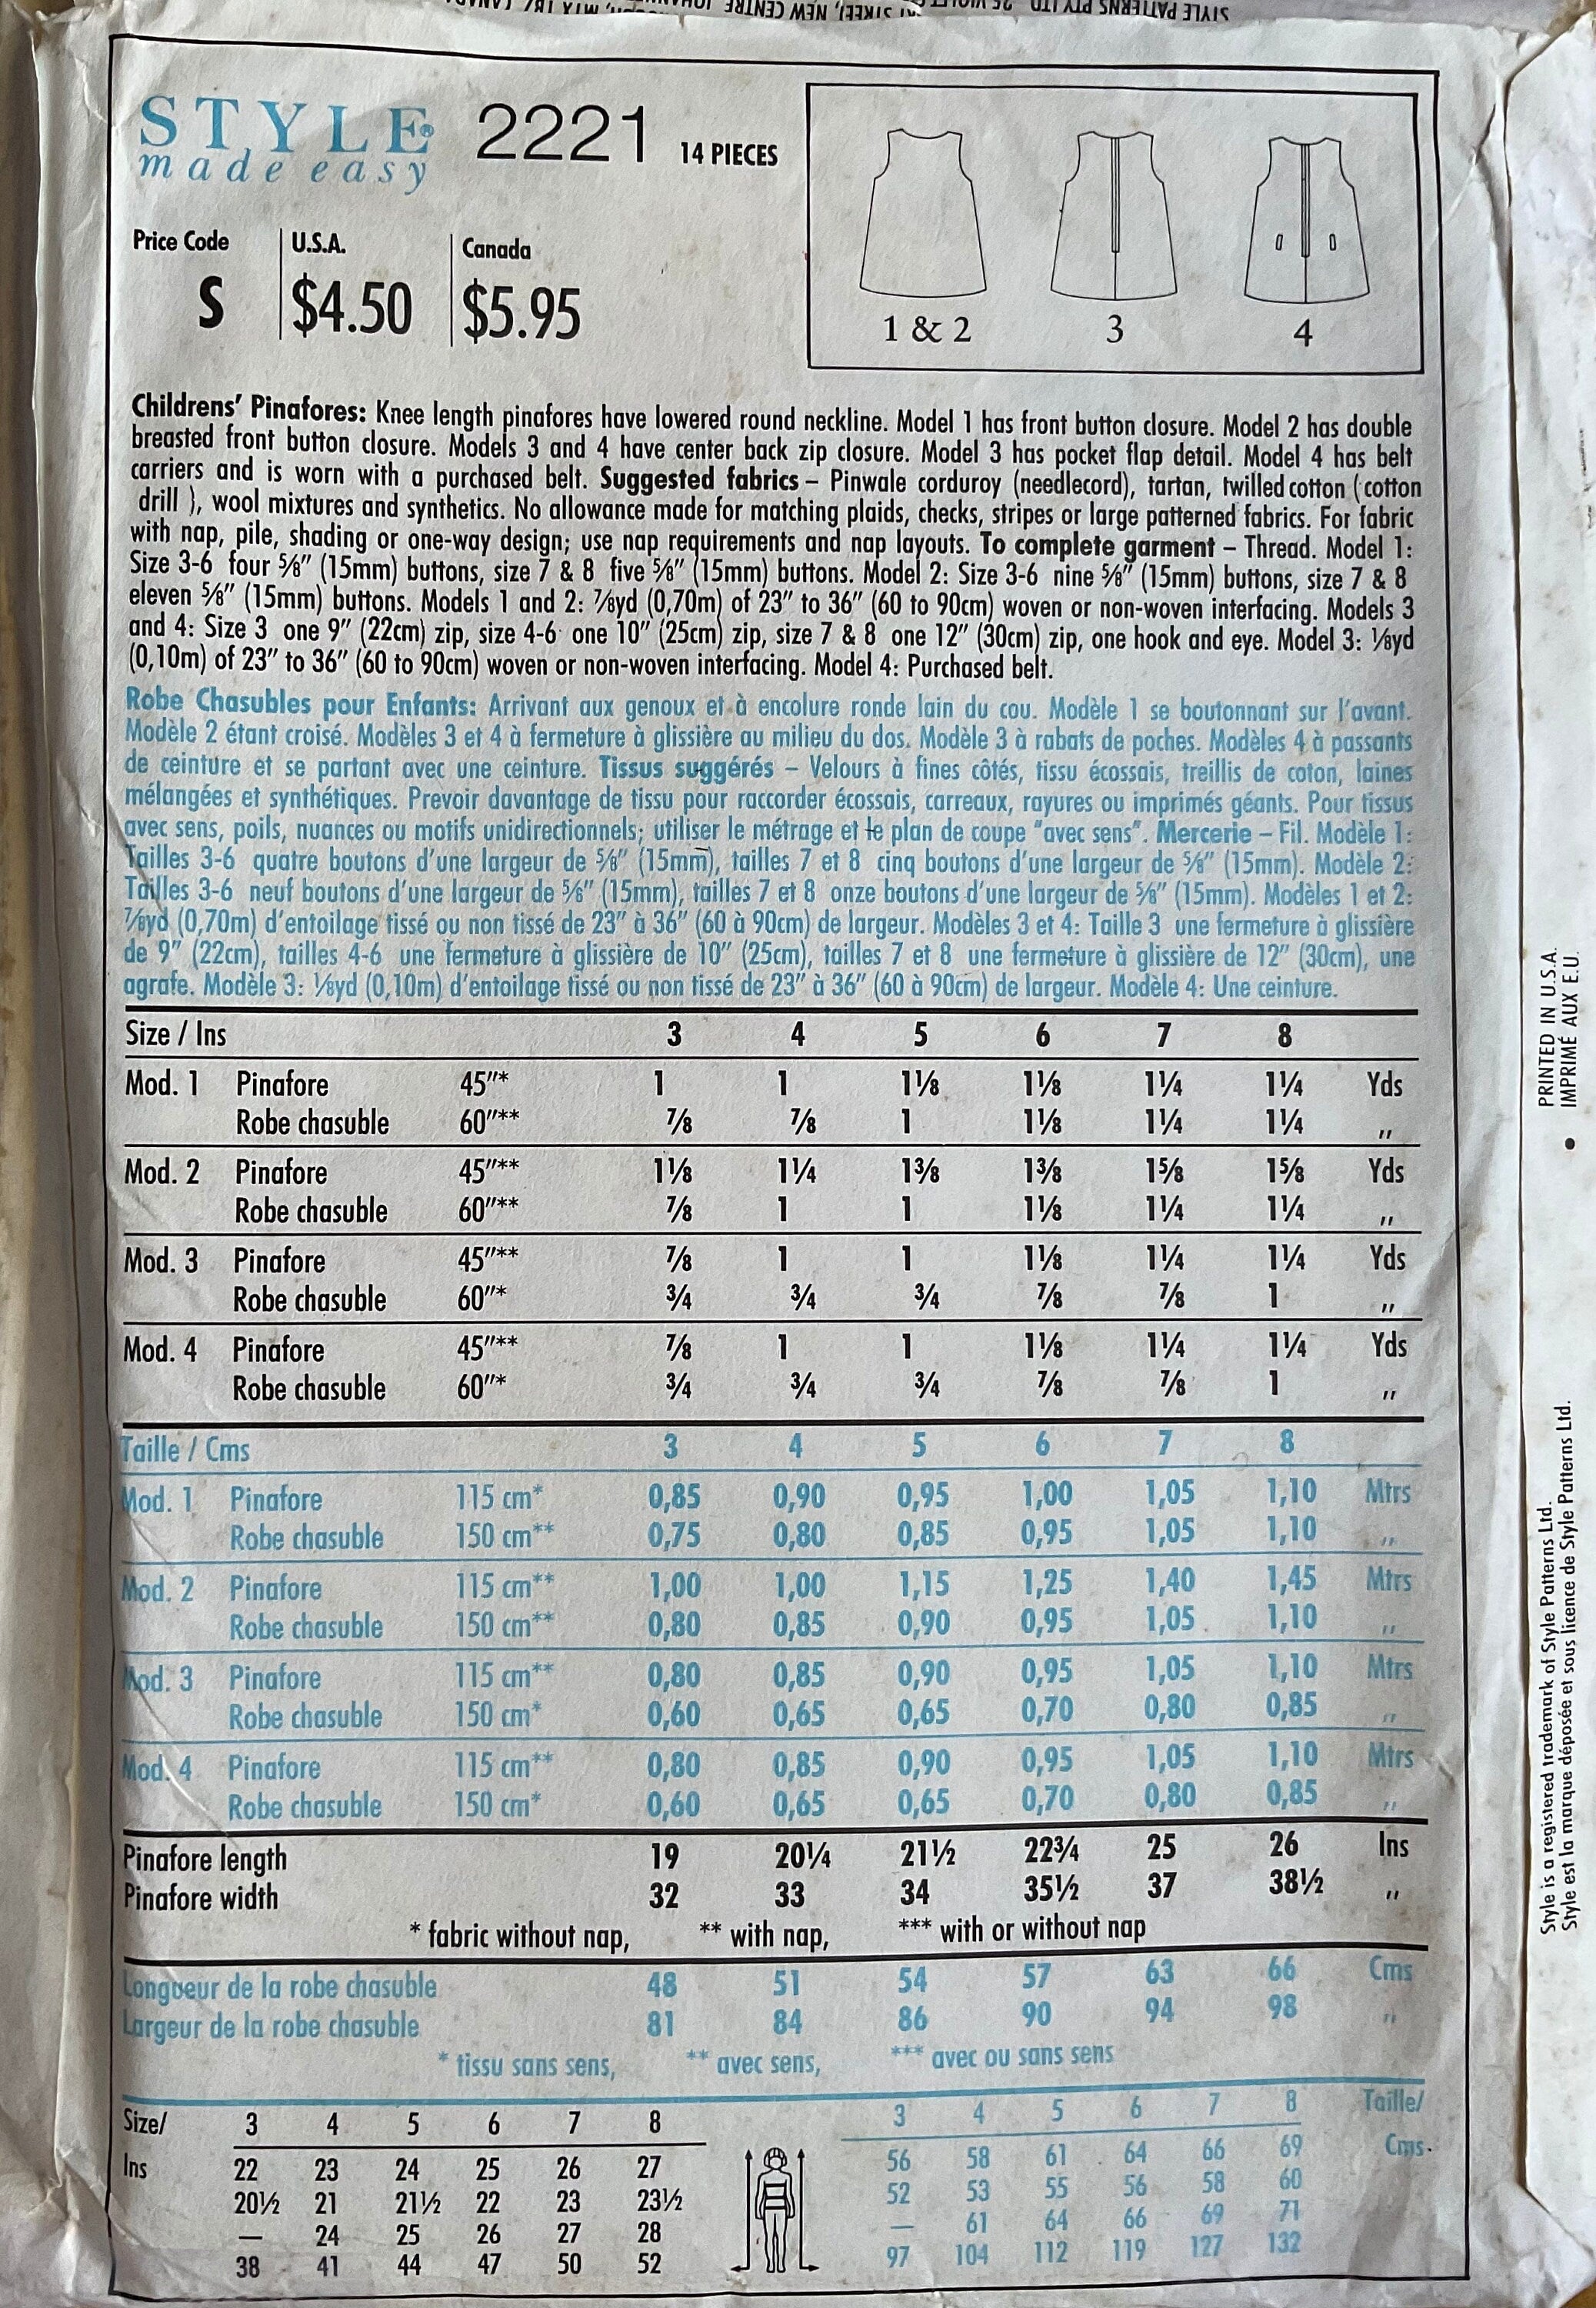 STYLE PATTERNS PTY LTD
STYLE® 2221 14 PIECES
made easy
Price Code U.S.A. Canada
S $4.50 $5.95
1 & 2 3 4
Childrens' Pinafores: Knee length pinafores have lowered round neckline. Model 1 has front button closure. Model 2 has double
breasted front button closure. Models 3 and 4 have center back zip closure. Model 3 has pocket flap detail. Model 4 has belt
carriers and is worn with a purchased belt. Suggested fabrics – Pinwale corduroy (needlecord), tartan, twilled cotton (cotton
drill ), wool mixtures and synthetics. No allowance made for matching plaids, checks, stripes or large patterned fabrics. For fabric
with nap, pile, shading or one-way design; use nap requirements and nap layouts. To complete garment – Thread. Model 1:
Size 3-6 four 5⁄8" (15mm) buttons, size 7 & 8 five 5⁄8" (15mm) buttons. Model 2: Size 3-6 nine 5⁄8" (15mm) buttons, size 7 & 8
eleven 5⁄8" (15mm) buttons. Models 1 and 2: 7⁄8yd (0,70m) of 23" to 36" (60 to 90cm) woven or non-woven interfacing. Models 3
and 4: Size 3 one 9" (22cm) zip, size 4-6 one 10" (25cm) zip, size 7 & 8 one 12" (30cm) zip, one hook and eye. Model 3: 1⁄8yd
(0,10m) of 23" to 36" (60 to 90cm) woven or non-woven interfacing. Model 4: Purchased belt.
Robe Chasubles pour Enfants: Arrivant aux genoux et à encolure ronde lain du cou. Modèle 1 se boutonnant sur l'avant.
Modèle 2 étant croisé. Modèles 3 et 4 à fermeture à glissière au milieu du dos. Modèle 3 à rabats de poches. Modèles 4 à passants
de ceinture et se partant avec une ceinture. Tissus suggérés – Velours à fines côtés, tissu écossais, treillis de coton, laines
mélangées et synthétiques. Prevoir davantage de tissu pour raccorder écossais, carreaux, rayures ou imprimés géants. Pour tissus
avec sens, poils, nuances ou motifs unidirectionnels; utiliser le métrage et le plan de coupe "avec sens". Mercerie – Fil. Modèle 1:
Tailles 3-6 quatre boutons d'une largeur de 5⁄8" (15mm), tailles 7 et 8 cinq boutons d'une largeur de 5⁄8" (15mm). Modèle 2:
Tailles 3-6 neuf boutons d'une largeur de 5⁄8" (15mm), tailles 7 et 8 onze boutons d'une largeur de 5⁄8" (15mm). Modèles 1 et 2:
7⁄8yd (0,70m) d'entoilage tissé ou non tissé de 23" à 36" (60 à 90cm) de largeur. Modèles 3 et 4: Taille 3 une fermeture à glissière
de 9" (22cm), tailles 4-6 une fermeture à glissière de 10" (25cm), tailles 7 et 8 une fermeture à glissière de 12" (30cm), une
agrafe. Modèle 3: 1⁄8yd (0,10m) d'entoilage tissé ou non tissé de 23" à 36" (60 à 90cm) de largeur. Modèle 4: Une ceinture.
Size / Ins 3 4 5 6 7 8
Mod. 1 Pinafore 45"* 1 1 1 1⁄8 1 1⁄8 1 1⁄4 1 1⁄4 Yds
Robe chasuble 60"** 7⁄8 7⁄8 1 1 1⁄8 1 1⁄4 1 1⁄4 "
Mod. 2 Pinafore 45"** 1 1⁄8 1 1⁄4 1 3⁄8 1 3⁄8 1 5⁄8 1 5⁄8 Yds
Robe chasuble 60"** 7⁄8 1 1 1 1⁄8 1 1⁄4 1 1⁄4 "
Mod. 3 Pinafore 45"** 7⁄8 1 1 1 1⁄8 1 1⁄4 1 1⁄4 Yds
Robe chasuble 60"* 3⁄4 3⁄4 3⁄4 7⁄8 7⁄8 1 "
Mod. 4 Pinafore 45"** 7⁄8 1 1 1 1⁄8 1 1⁄4 1 1⁄4 Yds
Robe chasuble 60"* 3⁄4 3⁄4 3⁄4 7⁄8 7⁄8 1 "
Taille / Cms 3 4 5 6 7 8
Mod. 1 Pinafore 115 cm* 0,85 0,90 0,95 1,00 1,05 1,10 Mtrs
Robe chasuble 150 cm** 0,75 0,80 0,85 0,95 1,05 1,10 "
Mod. 2 Pinafore 115 cm** 1,00 1,00 1,15 1,25 1,40 1,45 Mtrs
Robe chasuble 150 cm** 0,80 0,85 0,90 0,95 1,05 1,10 "
Mod. 3 Pinafore 115 cm** 0,80 0,85 0,90 0,95 1,05 1,10 Mtrs
Robe chasuble 150 cm* 0,60 0,65 0,65 0,70 0,80 0,85 "
Mod. 4 Pinafore 115 cm** 0,80 0,85 0,90 0,95 1,05 1,10 Mtrs
Robe chasuble 150 cm* 0,60 0,65 0,65 0,70 0,80 0,85 "
Pinafore length 19 20 1⁄4 21 1⁄2 22 3⁄4 25 26 Ins
Pinafore width 32 33 34 35 1⁄2 37 38 1⁄2 "
* fabric without nap, ** with nap, *** with or without nap
Longueur de la robe chasuble 48 51 54 57 63 66 Cms
Largeur de la robe chasuble 81 84 86 90 94 98 "
* tissu sans sens, ** avec sens, *** avec ou sans sens
Size/ 3 4 5 6 7 8
Ins 22 23 24 25 26 27
20 1⁄2 21 21 1⁄2 22 23 23 1⁄2
— 24 25 26 27 28
38 41 44 47 50 52
3 4 5 6 7 8 Taille/
56 58 61 64 66 69 Cms.
52 53 55 56 58 60
— 61 64 66 69 71
97 104 112 119 127 132
PRINTED IN U.S.A.
• IMPRIMÉ AUX E.U.
Style is a registered trademark of Style Patterns Ltd.
Style est la marque déposée et sous licence de Style Patterns Ltd.